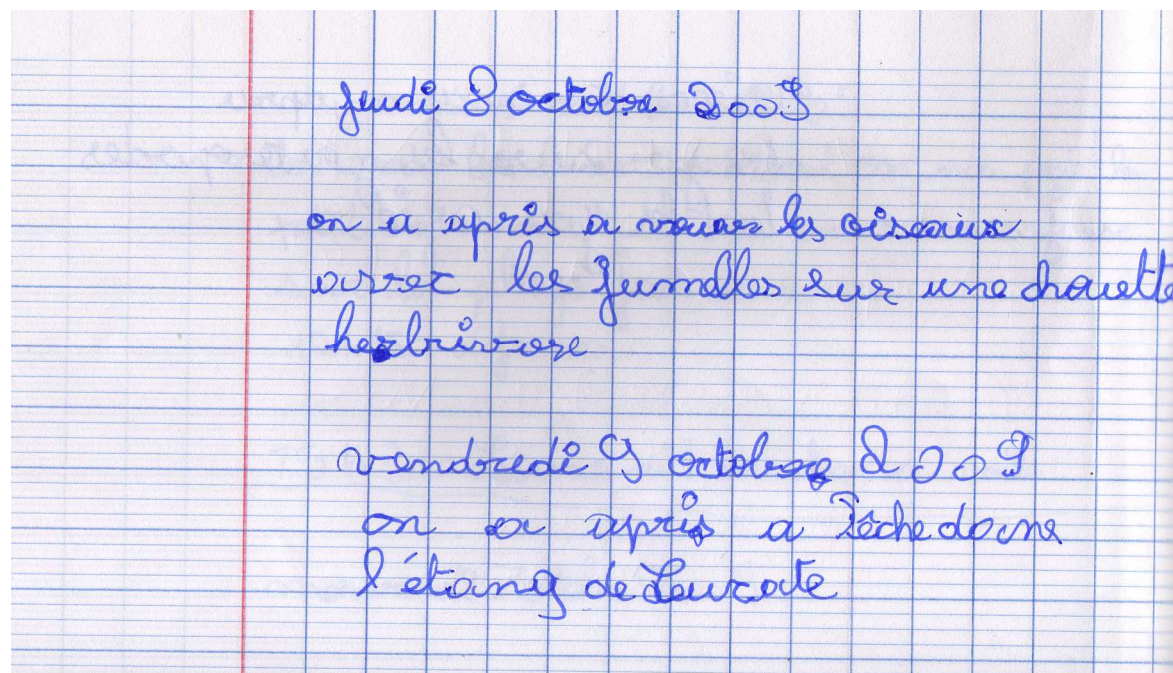 jeudi 8 octobre 2009
on a apris a vouar les oiseaux
avec les Jumelles sur une chouette
herbrivore
vendredi 9 octobre 2009
on a apris a Pêche dans
l'étang de Leucate